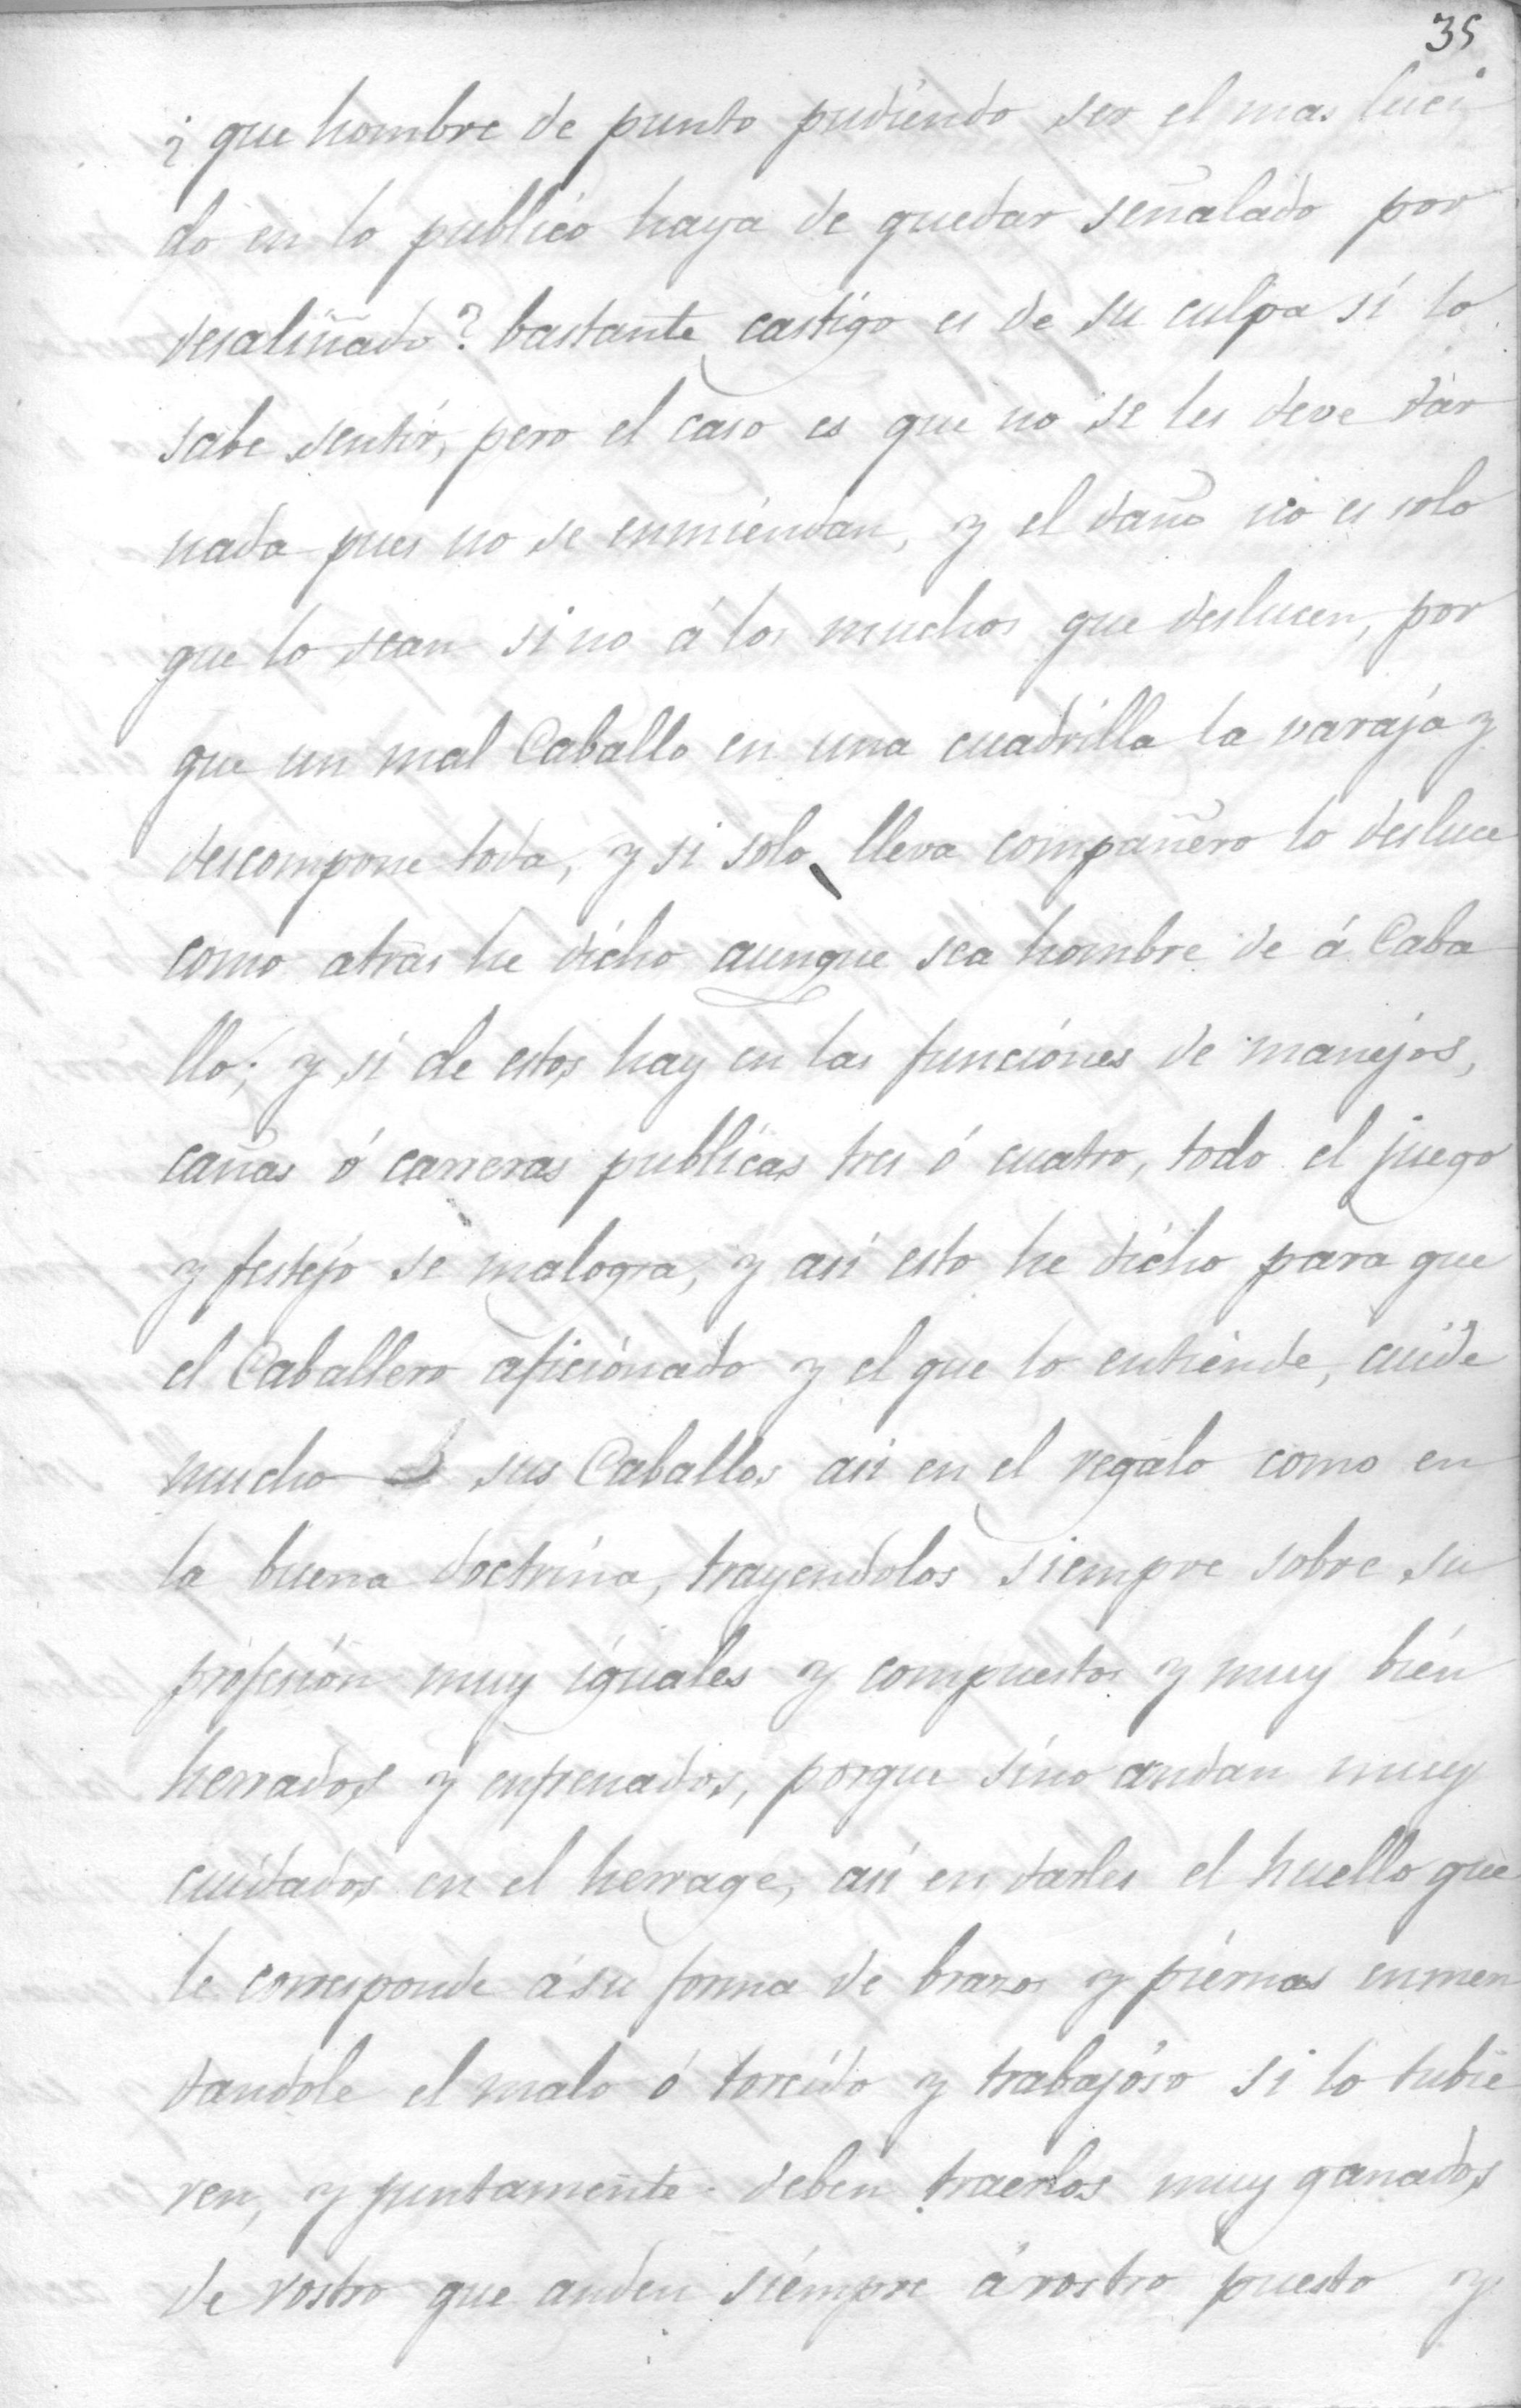 35
¿ que hombre de punto pudiendo ser el mas luci
do en lo publico haya de quedar señalado por
desaliñado? bastante castigo es de su culpa si lo
sabe sentir, pero el caso es que no se les deve dár
nada pues no se enmiendan, y el daño no es solo
que lo sean sino á los muchos que deslucen, por
que un mal Caballo en una cuadrilla la varaja y
descompone toda, y si solo lleva compañero lo desluce
como atras he dicho aunque sea hombre de á Caba
llo; y si de estos hay en las funciones de manejos,
cañas ó carreras publicas tres ó cuatro, todo el juego
y festejo se malogra, y asi esto he dicho para que
el Caballero aficionado y el que lo entiende, cuide
mucho sus Caballos asi en el regalo como en
la buena doctrina, trayendolos siempre sobre su
profesión muy iguales y compuestos y muy bién
herrados y enfrenados, porque sino andan muy
cuidados en el herrage, asi en darles el huello que
le corresponde á su forma de brazos y piernas enmen
dandole el malo ó torcido y trabajoso si lo tubie
ren, y juntamente deben traerlos muy ganados
de rostro que anden siempre á rostro puesto y